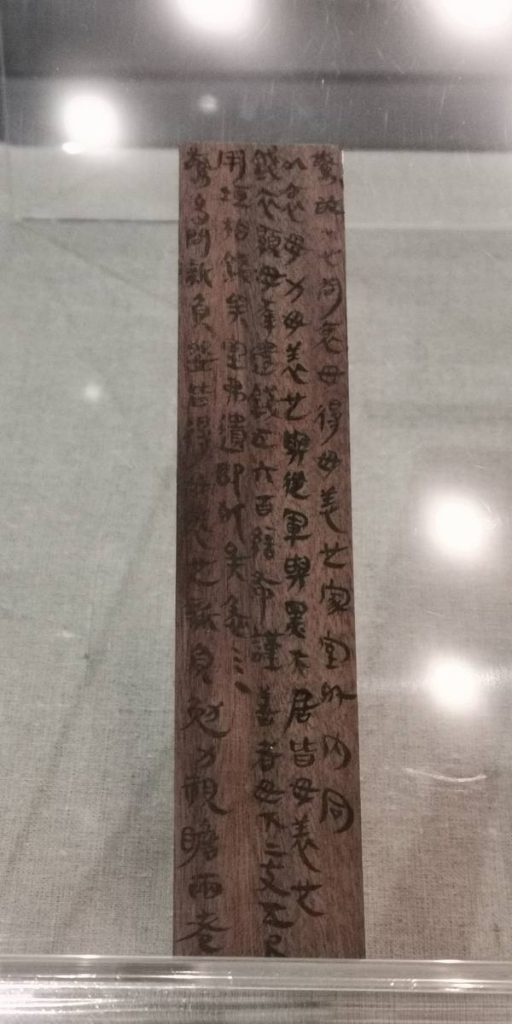 驚敢大心問衷母得毋恙也家室外内同
以衷母力毋恙也與從軍與黑夫居皆毋恙也
錢衣願母幸遺錢五六百布謹善者毋下二丈五尺
用垣柏錢矣室弗遺即死矣急
驚多問新負妴皆得毋恙也新負勉力視瞻兩老